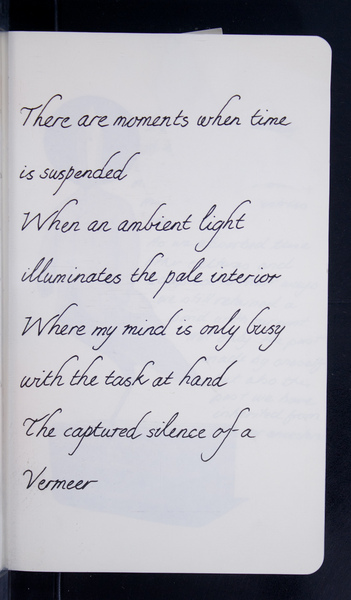 There are moments when time
is suspended
When an ambient light
illuminates the pale interior
Where my mind is only busy
with the task at hand
The captured silence of a
Vermeer